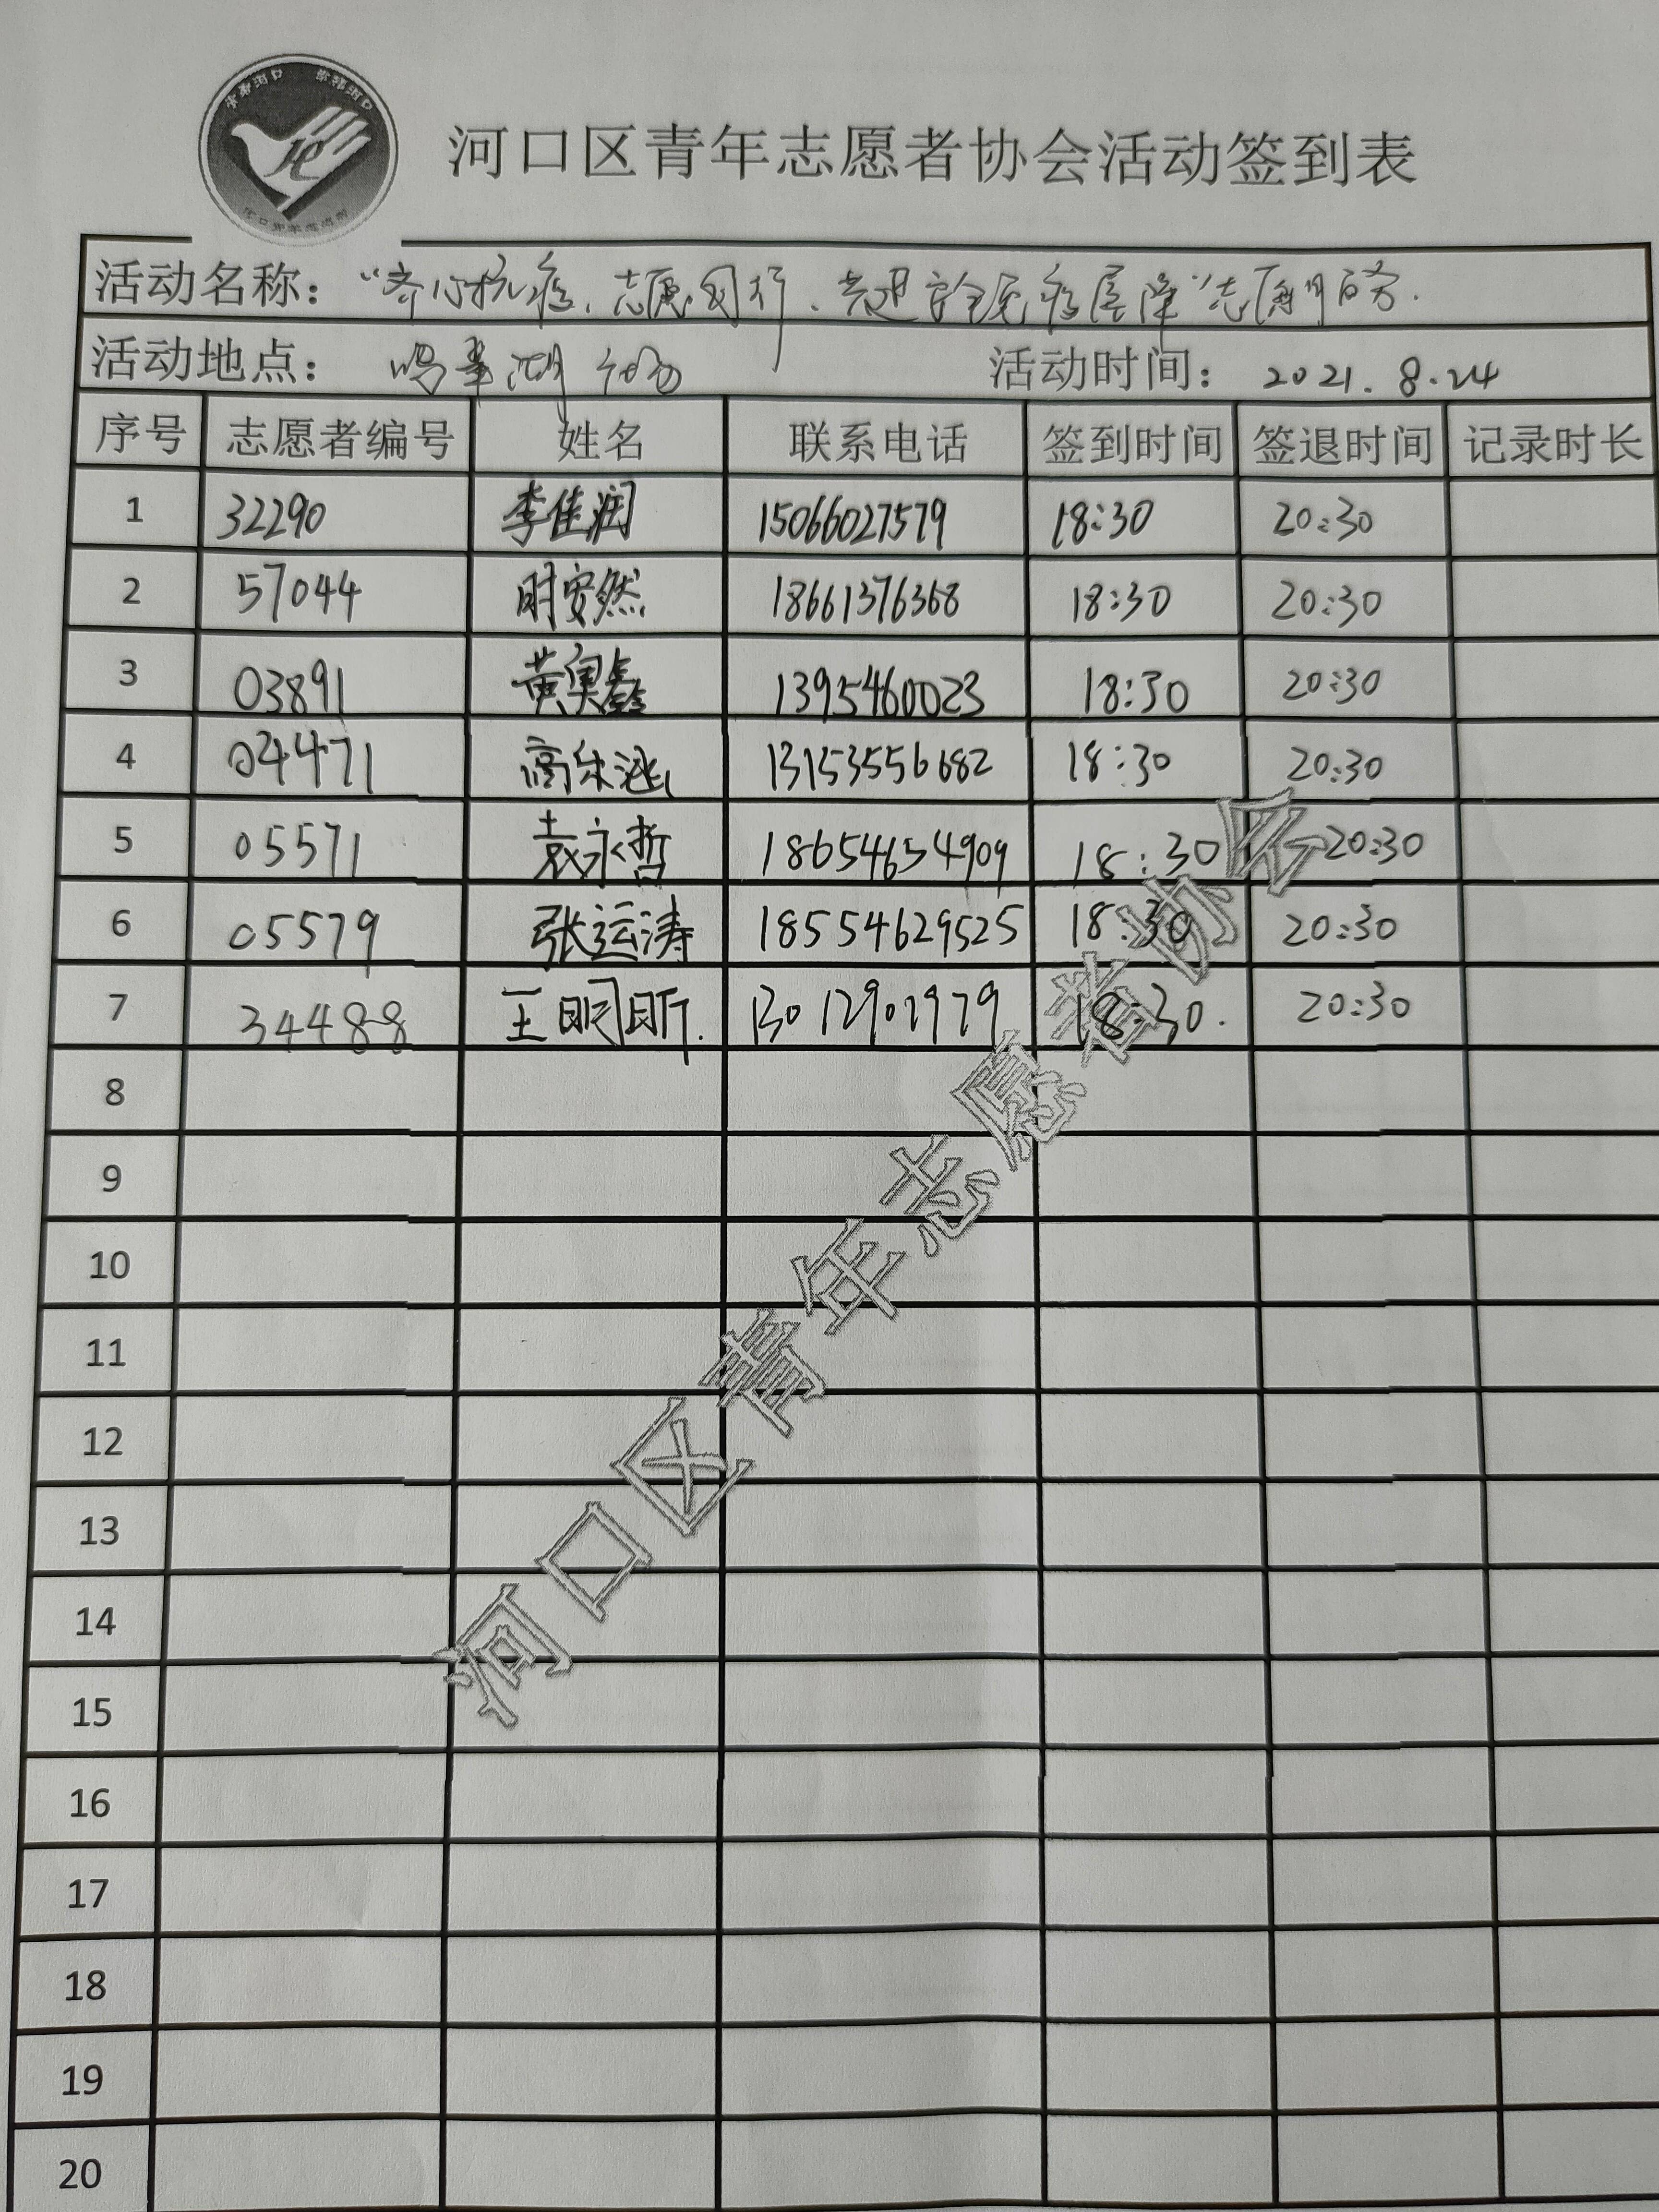 河口区青年志愿者协会活动签到表
活动名称：“齐心抗疫、志愿同行、共建安全免疫屏障”志愿服务.
活动地点： 鸣翠湖 活动时间： 2021.8.24
序号 志愿者编号 姓名 联系电话 签到时间 签退时间 记录时长
1 32290 李佳润 15066027579 18:30 20:30
2 57044 明安然 18661376368 18:30 20:30
3 03891 黄奥鑫 1395460023 18:30 20:30
4 04471 高乐涵 13153556682 18:30 20:30
5 05571 袁永哲 18654654909 18:30 20:30
6 05579 张运涛 18554629525 18:30 20:30
7 34488 王明昕. 13012901979 18:30. 20:30
8
9
10
11
12
13
14
15
16
17
18
19
20
河口区青年志愿者协会